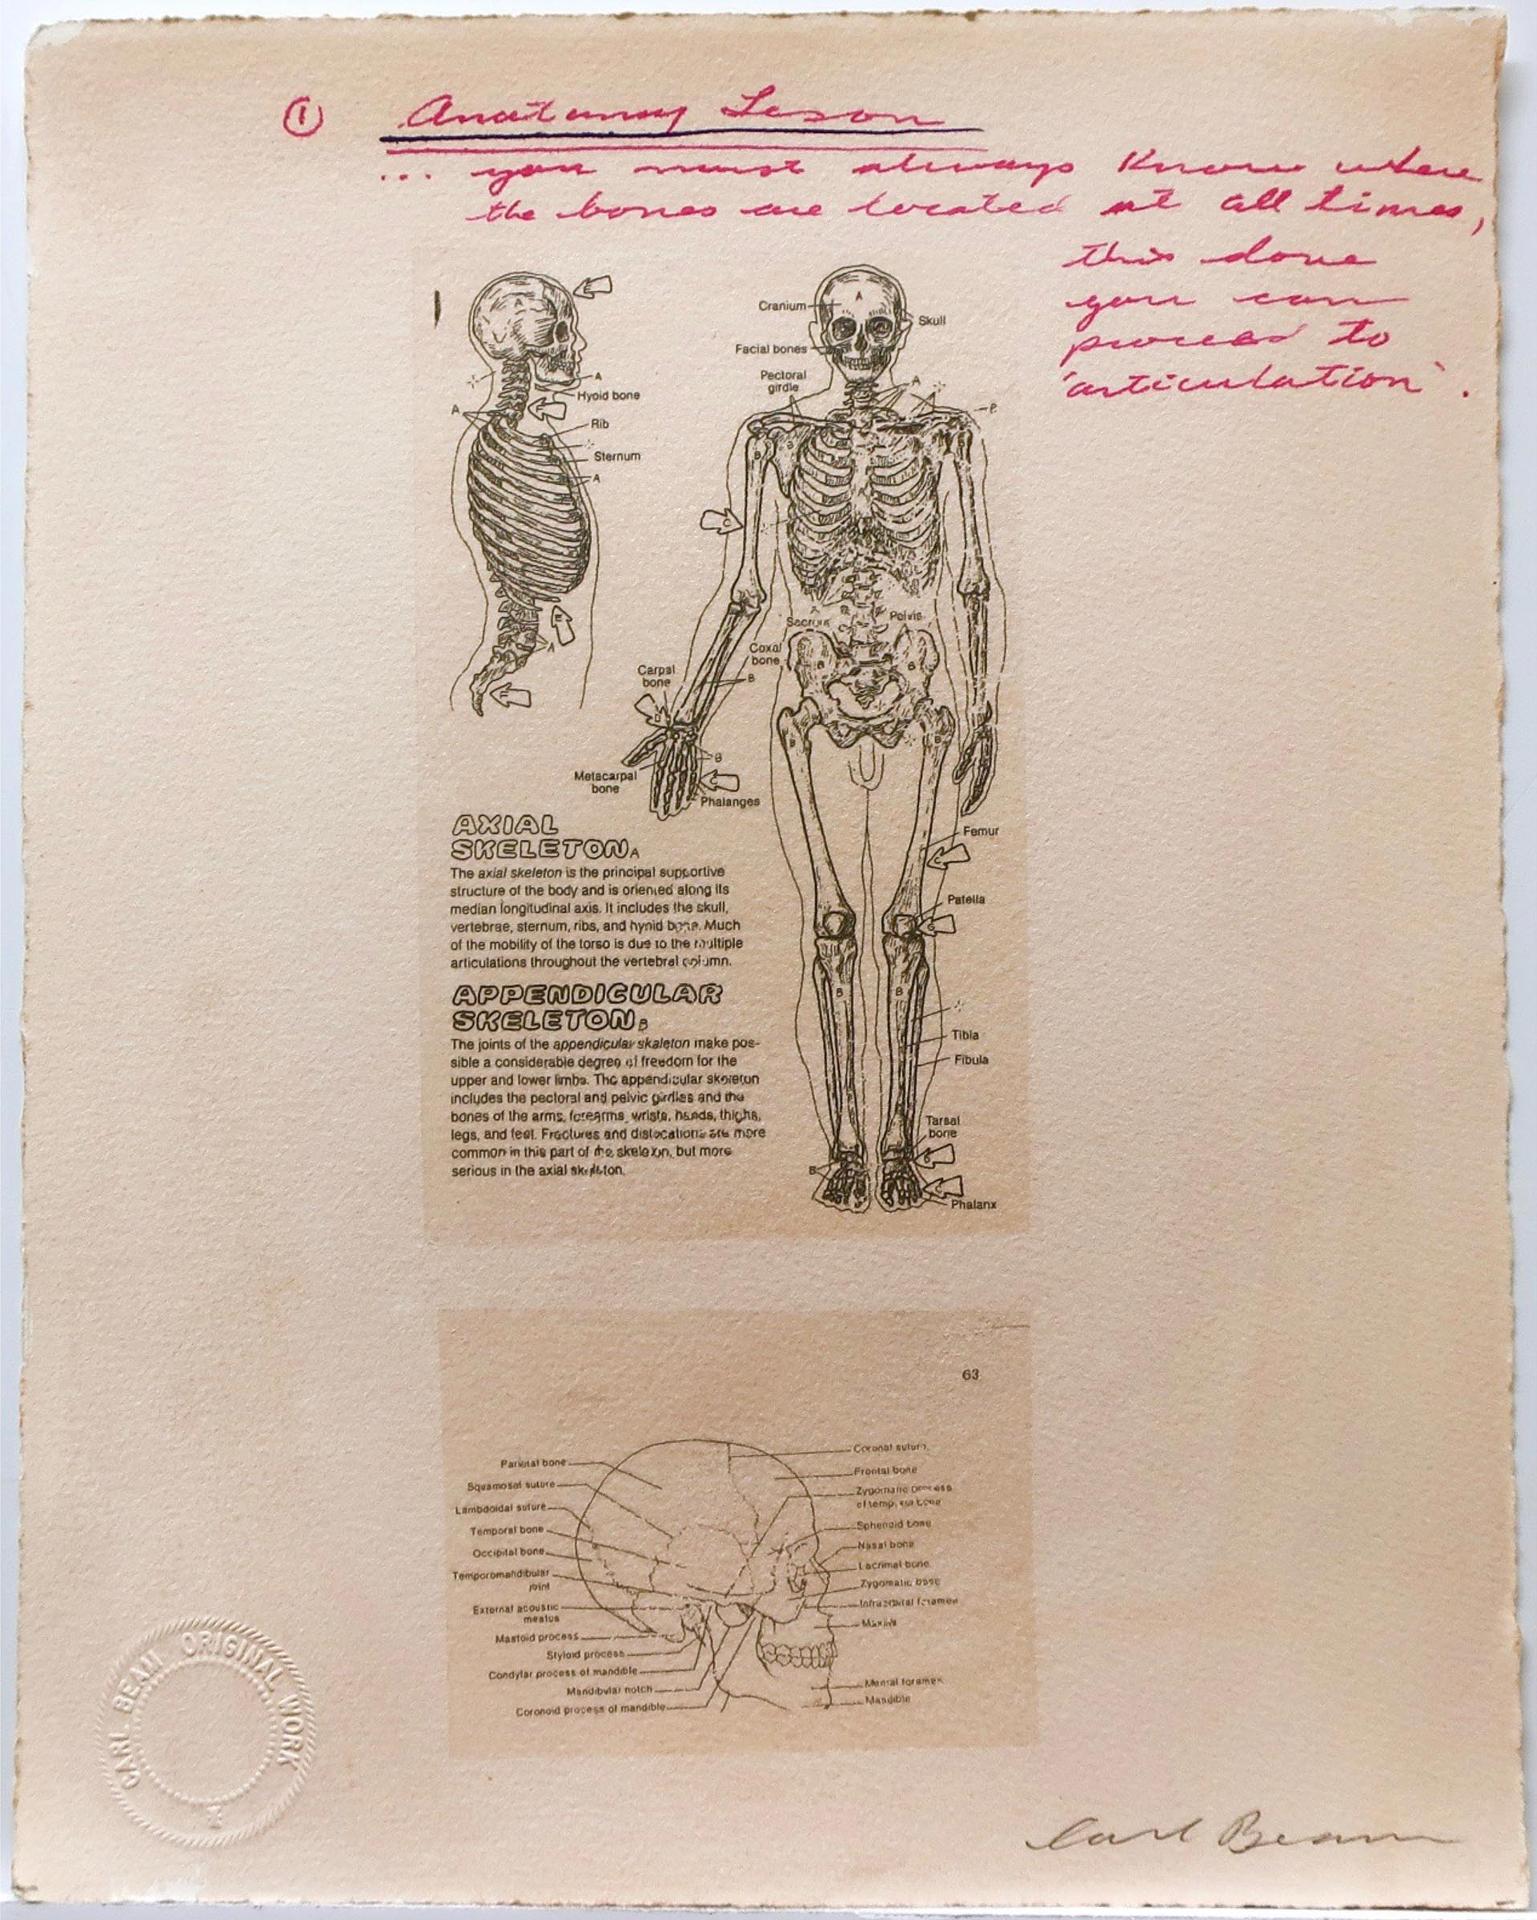 ① Anatomy Leson
... you must always know where
the bones are located at all times,
this done
you can
proceed to
'articulation'.
A
A
Hyoid bone
A
Rib
Sternum
A
A
Cranium
A
Skull
Facial bones
Pectoral
girdle
A
B
B
B
A
B
Sacrum
Pelvis
Coxal
bone
B
A
B
Carpal
bone
B
B
B
B
B
Metacarpal
bone
Phalanges
AXIAL
SKELETON A
The axial skeleton is the principal supportive
structure of the body and is oriented along its
median longitudinal axis. It includes the skull,
vertebrae, sternum, ribs, and hyoid bone. Much
of the mobility of the torso is due to the multiple
articulations throughout the vertebral column.
APPENDICULAR
SKELETON B
The joints of the appendicular skeleton make pos-
sible a considerable degree of freedom for the
upper and lower limbs. The appendicular skeleton
includes the pectoral and pelvic girdles and the
bones of the arms, forearms, wrists, hands, thighs,
legs, and feet. Fractures and dislocations are more
common in this part of the skeleton, but more
serious in the axial skeleton.
Femur
Patella
B
B
Tibia
Fibula
Tarsal
bone
B
Phalanx
63
Parietal bone
Squamosal suture
Lambdoidal suture
Temporal bone
Occipital bone
Temporomandibular
joint
External acoustic
meatus
Mastoid process
Styloid process
Condylar process of mandible
Mandibular notch
Coronoid process of mandible
Coronal suture
Frontal bone
Zygomatic process
of temporal bone
Sphenoid bone
Nasal bone
Lacrimal bone
Zygomatic bone
Infraorbital foramen
Maxilla
Mental foramen
Mandible
CARL BEAM ORIGINAL WORK
Carl Beam